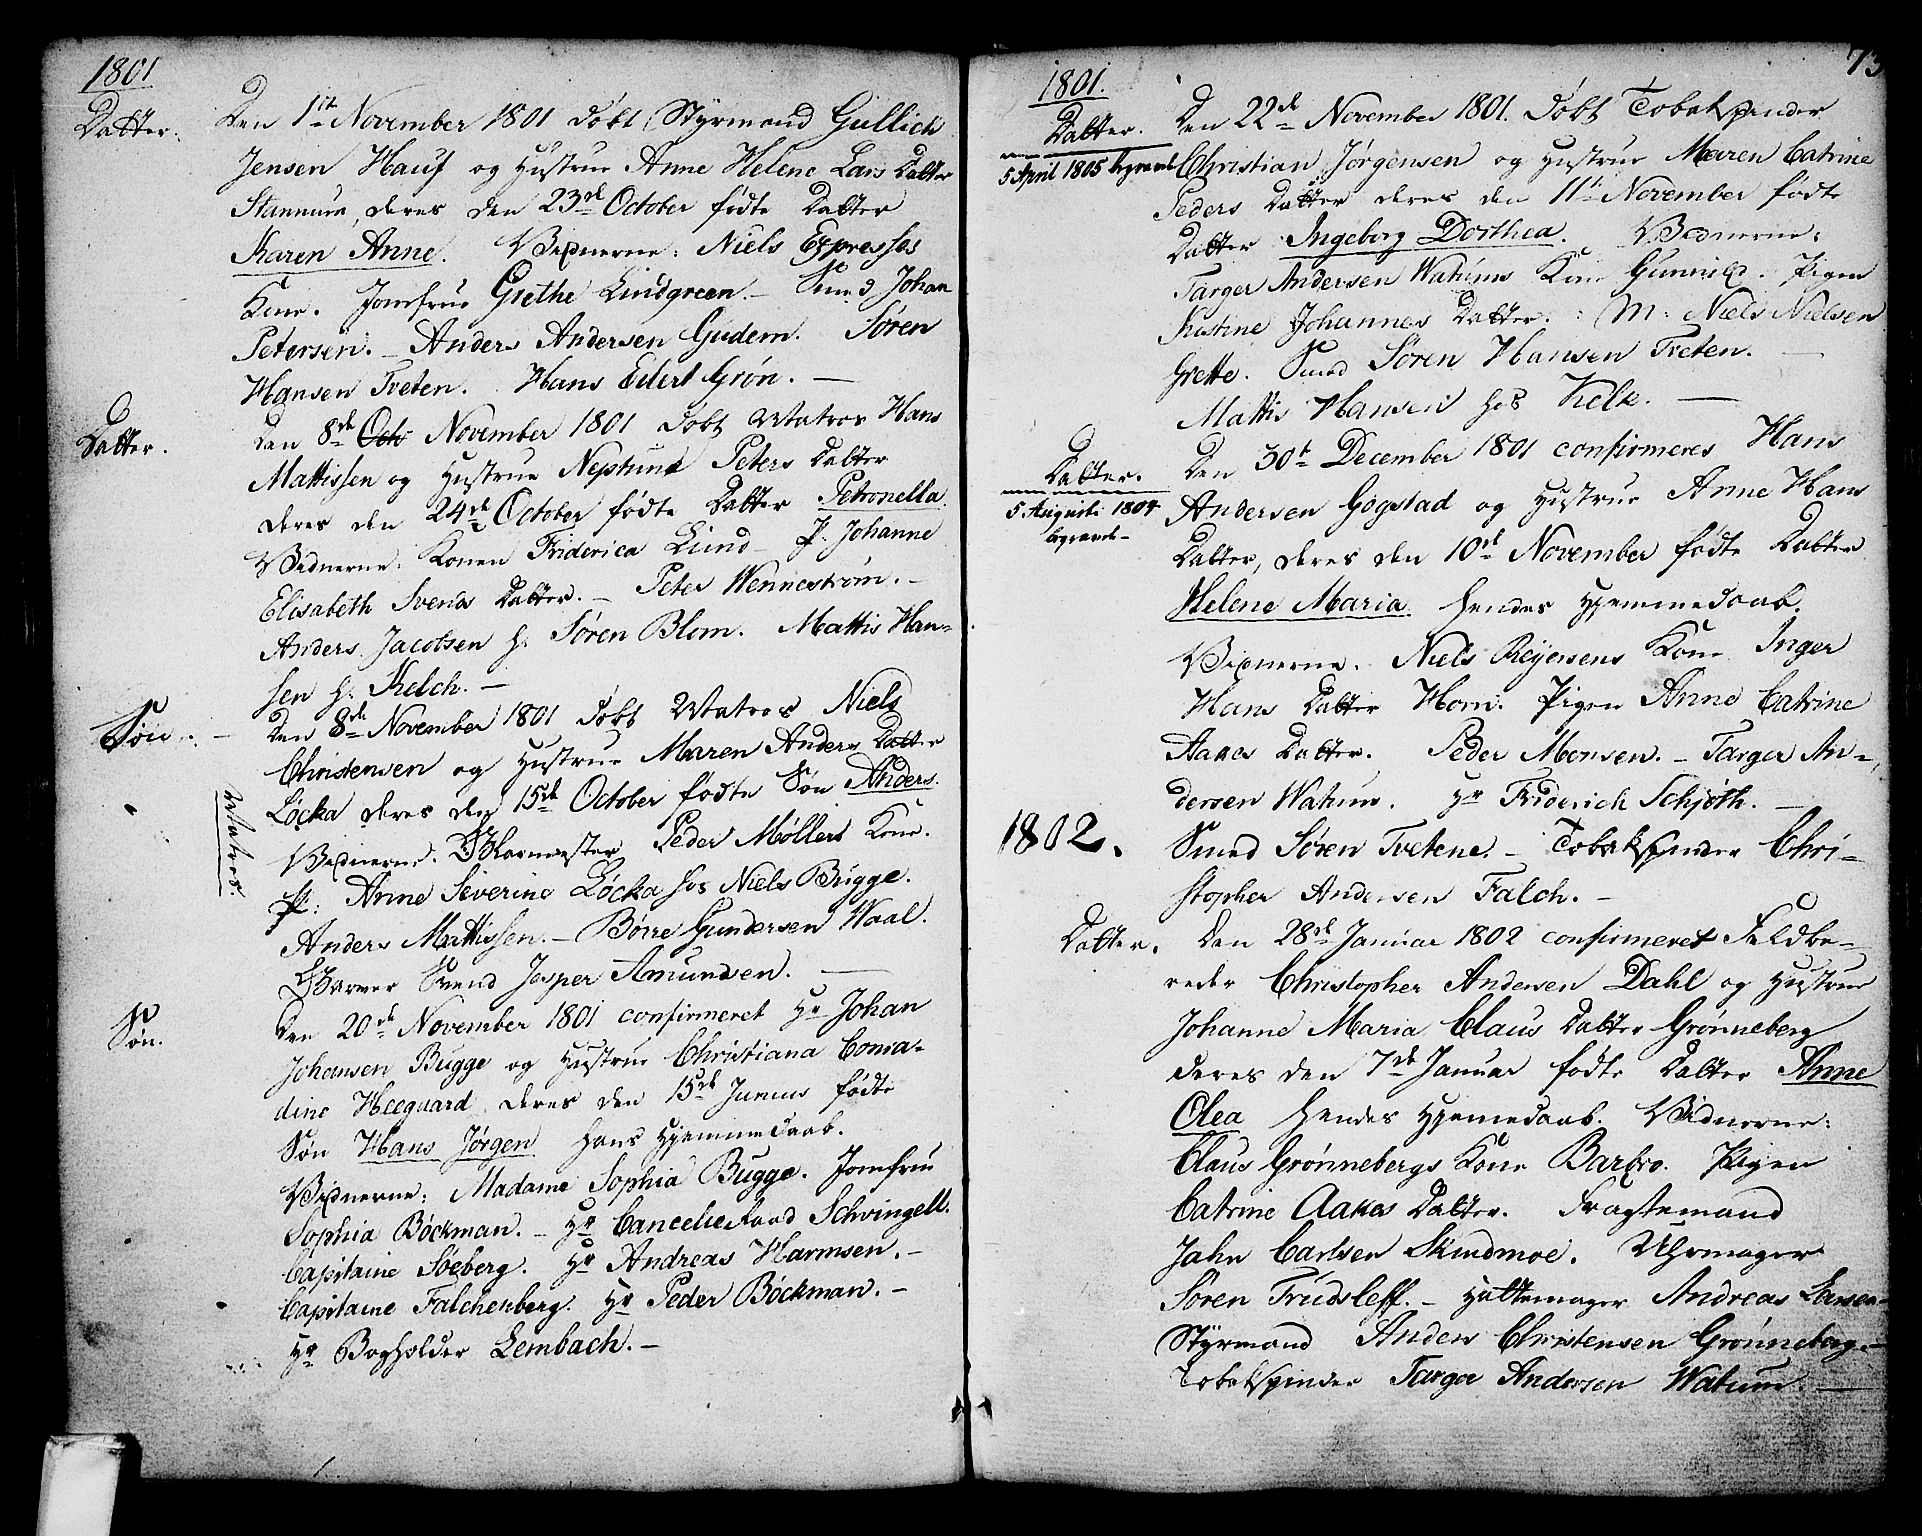 1801
Datter.
Den 1ste November 1801 døbt Styrmand Gullich
Jensen Hauf og Hustrue Anne Helene Lars Datter
Stannum, deres den 23de October fødte Datter
Karen Anne. Vidnerne: Niels Expresses
Kone. Jomfrue Grethe Lindgreen. – Smed Johan
Petersen. – Anders Andersen Gudem. Søren
Hansen Tveten. Hans Eilert Grøn. –
Datter.
Den 8de Octo November 1801 døbt Matros Hans
Mattissen og Hustrue Neptuna Peters Datter
deres den 24de October fødte Datter Petronella.
Vidnerne: Konen Friderica Lund – P. Johanne
Elisabeth Svends Datter. – Peter Wennestrøm. –
Anders Jacobsen h: Søren Blom. Mattis Han-
sen h: Kelch. –
Søn.
Den 8de November 1801 døbt Matros Niels
Christensen og Hustrue Maren Anders Datter
Løcka deres den 15de October fødte Søn Anders.
Matros.
Vidnerne. Peder Møllers Kone.
P: Anne Severine Løcka hos Niels Brigge.
Anders Mattissen. – Børre Gundersen Waal.
Svend Jesper Amundsen. –
Søn.
Den 20de November 1801 confirmeret Hr Johan
Johansen Bugge og Hustrue Christiana Conra-
dine Heeguard deres den 15de Junius fødte
Søn Hans Jørgen hans Hjemmedaab.
Vidnerne: Madame Sophia Bugge. Jomfrue
Sophia Böckman. – Hr Cancelieraad Schvingell.
Capitaine Søeberg. Hr Andreas Harmsen. –
Capitaine Falchenberg. Hr Peder Böckman. –
Hr Bogholder Lembach. –
73
1801.
Datter.
5 April 1805 begravet
Den 22de November 1801. døbt Tobakspinder
Christian Jørgensen og Hustrue Maren Catrine
Peders Datter deres den 11te November fødte
Datter Ingeborg Dorthea. Vidnerne:
Targer Andersen Watums Kone Gunnild. Pigen
Kistine Johannes Datter. M: Niels Nielsen
Grette. Smed Søren Hansen Tveten. –
Mattis Hansen hos Kelk. –
Datter.
5 Augusti 1804
begravet –
Den 30te December 1801 confirmeres Hans
Andersen Gogstad og Hustrue Anne Hans
Datter, deres den 10de November fødte Datter
Helene Maria hendes Hjemmedaab.
Vidnerne. Niels Reyersens Kone Inger
Hans Datter Horn. Pigen Anne Catrine
Aages Datter. Peder Monsen. – Targer An-
dersen Watum. Hr Friderich Schjøth. –
1802.
Smed Søren Tvetene. – Tobakspinder Chri-
stopher Andersen Falch. –
Datter.
Den 28de Januar 1802 confirmeret Feldbe-
reder Christopher Andersen Dahl og Hustrue
Johanne Maria Claus Datter Grønneberg
deres den 7de Januar fødte Datter Anne
Olea hendes Hjemedaab. Vidnerne:
Claus Grønnebergs Kone Barbro. Pigen
Catrine Aakes Datter. Fragtemand
Jahn Carlsen Skindmoe. Uhrmager
Søren Trudsleff. – Hattemager Andreas Larsen –
Styrmand Anders Christensen Grønneberg. –
Tobakspinder Targer Andersen Watum. –